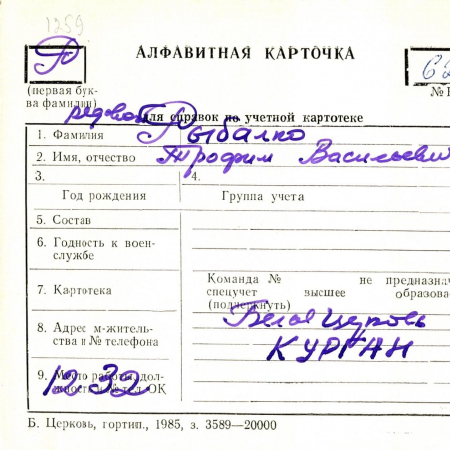 1259
Р АЛФАВИТНАЯ КАРТОЧКА
(первая бук-
ва фамилии)
рядовой для справок по учетной картотеке
1. Фамилия Рыбалко
2. Имя, отчество Трофим Васильевич
3. 4.
Год рождения Группа учета
5. Состав
6. Годность к воен-
службе
7. Картотека Команда № не предназнач
спецучет высшее образова
(подчеркнуть)
8. Адрес м-житель-
ства и № телефона Белая Церковь
КУРГАН
9. Место работы, дол-
жность и № тел. ОК
Б. Церковь, гортип., 1985, з. 3589—20000